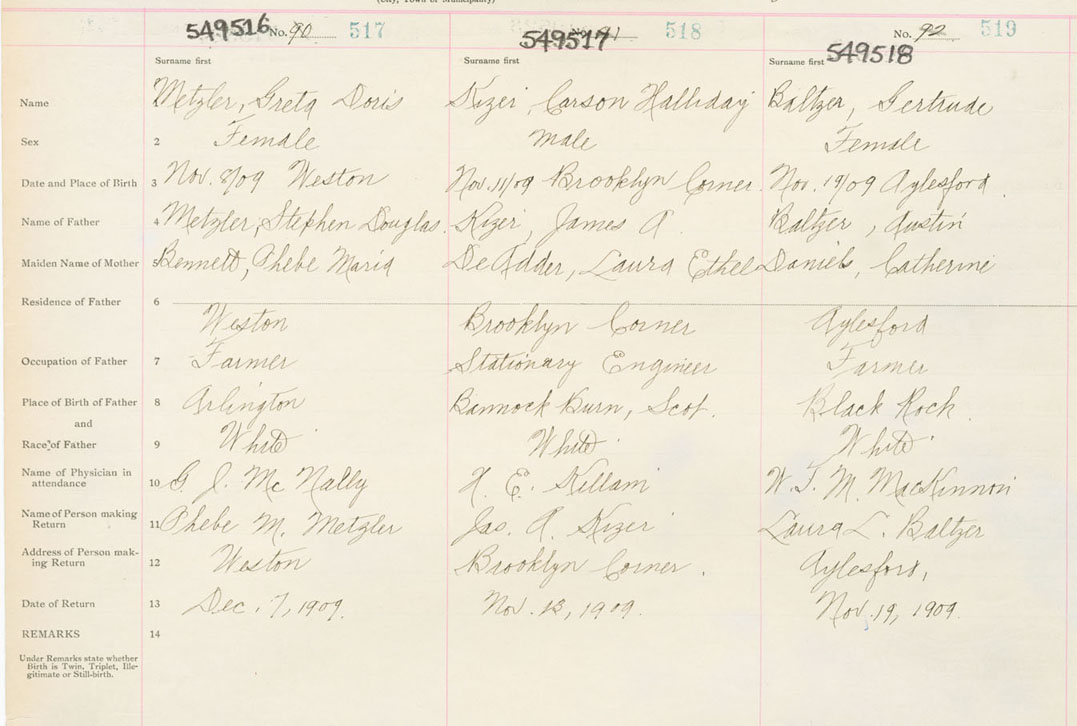 (City, Town or Municipality)
549516 No. 90 517
549517 No. 91 518
549518 No. 92 519
Surname first Surname first Surname first
Name Metzler, Greta Doris Kizer, Carson Halliday Baltzer, Gertrude
Sex 2 Female Male Female
Date and Place of Birth 3 Nov. 8/09 Weston Nov. 11/09 Brooklyn Corner. Nov. 19/09 Aylesford.
Name of Father 4 Metzler, Stephen Douglas. Kizer, James A. Baltzer, Austin
Maiden Name of Mother 5 Bennett, Phebe Maria DeAdder, Laura Ethel Daniels, Catherine
Residence of Father 6
Weston Brooklyn Corner Aylesford
Occupation of Father 7 Farmer Stationary Engineer Farmer
Place of Birth of Father 8 Arlington Bannock Burn, Scot. Black Rock
and
Race of Father 9 White White White
Name of Physician in
attendance 10 G. J. Mc Nally H. E. Killam W. T. M. MacKinnon
Name of Person making
Return 11 Phebe M. Metzler Jas. A. Kizer Laura L. Baltzer
Address of Person mak-
ing Return 12 Weston Brooklyn Corner. Aylesford,
Date of Return 13 Dec. 7, 1909. Nov. 13, 1909. Nov. 19, 1909.
REMARKS 14
Under Remarks state whether
Birth is Twin, Triplet, Ille-
gitimate or Still-birth.